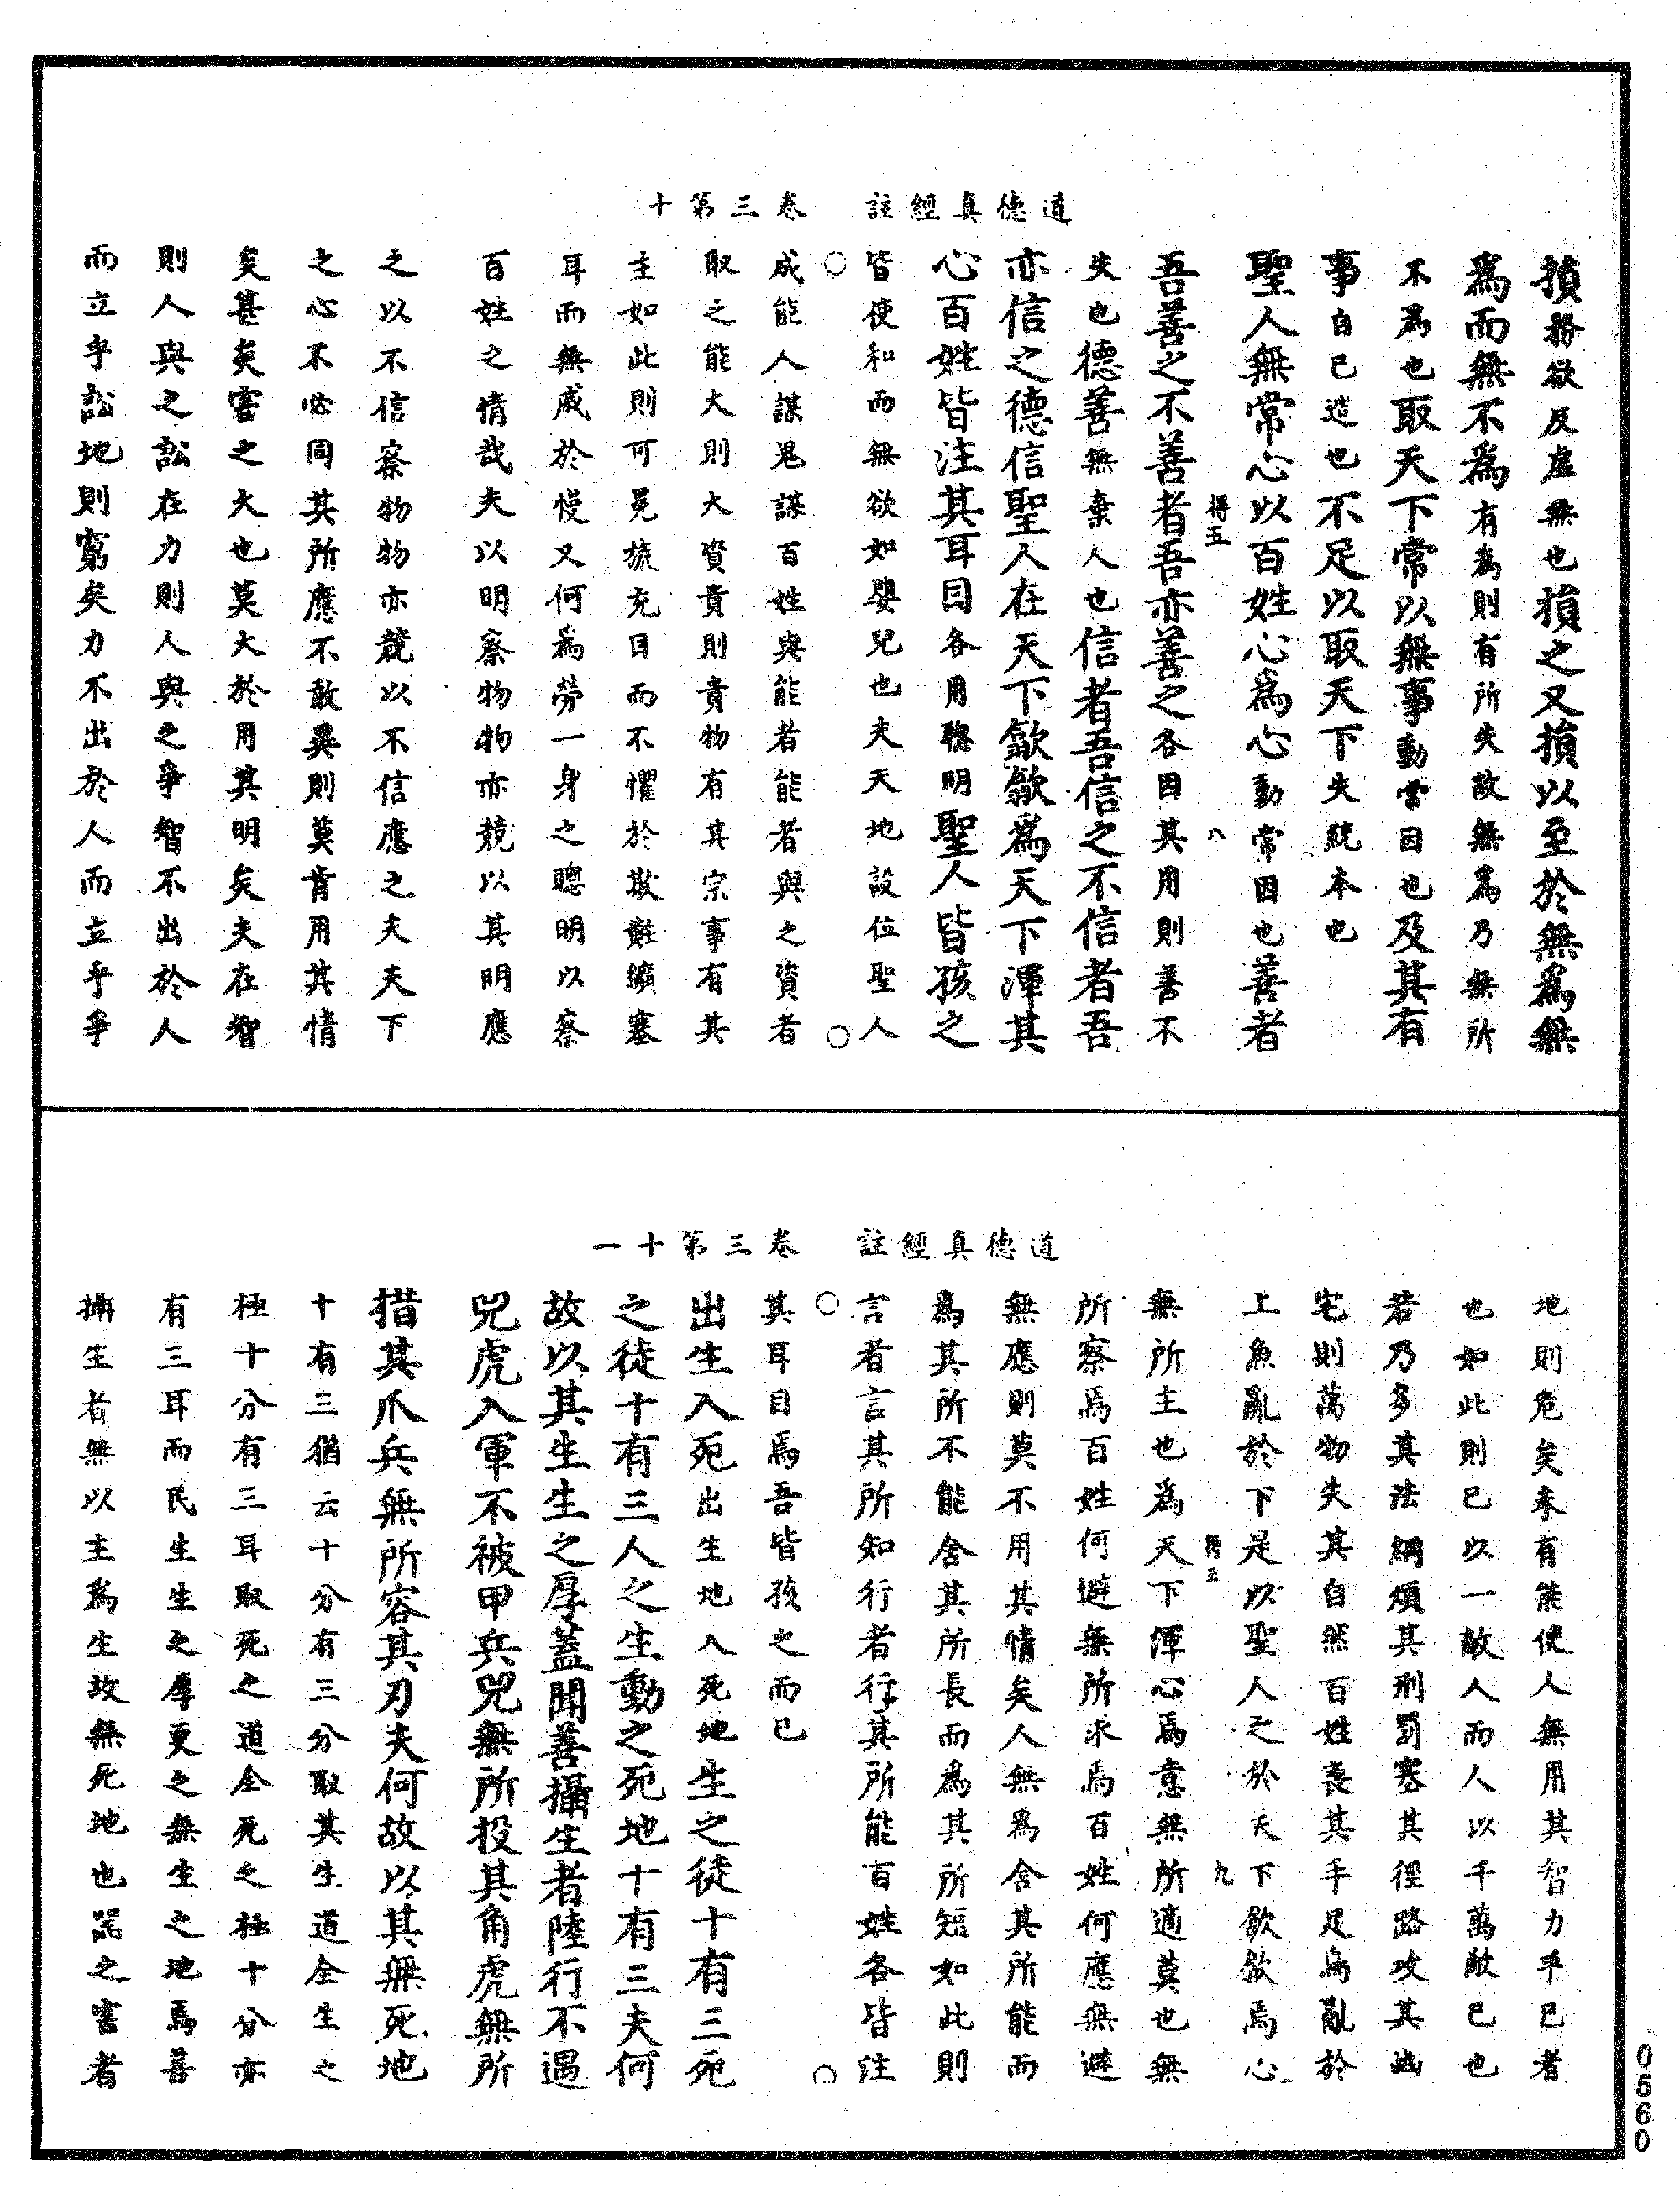 道德真經註　卷三第十
損務欲反虛無也損之又損以至於無為無
為而無不為有為則有所失故無為乃無所
不為也取天下常以無事動常因也及其有
事自已造也不足以取天下失統本也
聖人無常心以百姓心為心動常因也善者
得五　八
吾善之不善者吾亦善之各因其用則善不
失也德善無棄人也信者吾信之不信者吾
亦信之德信聖人在天下歙歙為天下渾其
心百姓皆注其耳目各用聰明聖人皆孩之
皆使和而無欲如嬰兒也夫天地設位聖人
○　○
成能人謀鬼謀百姓與能者能者與之資者
取之能大則大資貴則貴物有其宗事有其
主如此則可冕旒充目而不懼於欺黈纊塞
耳而無戚於慢又何為勞一身之聰明以察
百姓之情哉夫以明察物物亦競以其明應
之以不信察物物亦競以不信應之夫夫下
之心不必同其所應不敢異則莫肯用其情
矣甚矣害之大也莫大於用其明矣夫在智
則人與之訟在力則人與之爭智不出於人
而立乎訟地則窮矣力不出於人而立乎爭
道德真經註　卷三第十一
地則危矣未有能使人無用其智力乎已者
也如此則已以一敵人而人以千萬敵已也
若乃多其法網煩其刑罰塞其徑路攻其幽
宅則萬物失其自然百姓喪其手足鳥亂於
上魚亂於下是以聖人之於天下歙歙焉心
得五　九
無所主也為天下渾心焉意無所適莫也無
所察焉百姓何避無所求焉百姓何應無避
無應則莫不用其情矣人無為舍其所能而
為其所不能舍其所長而為其所短如此則
言者言其所知行者行其所能百姓各皆注
○　○
其耳目焉吾皆孩之而已
出生入死出生地入死地生之徒十有三死
之徒十有三人之生動之死地十有三夫何
故以其生生之厚蓋聞善攝生者陸行不遇
兕虎入軍不被甲兵兕無所投其角虎無所
措其爪兵無所容其刃夫何故以其無死地
十有三猶云十分有三分取其生道全生之
極十分有三耳取死之道全死之極十分亦
有三耳而民生生之厚更之無生之地焉善
攝生者無以主為生故無死地也器之害者
0560